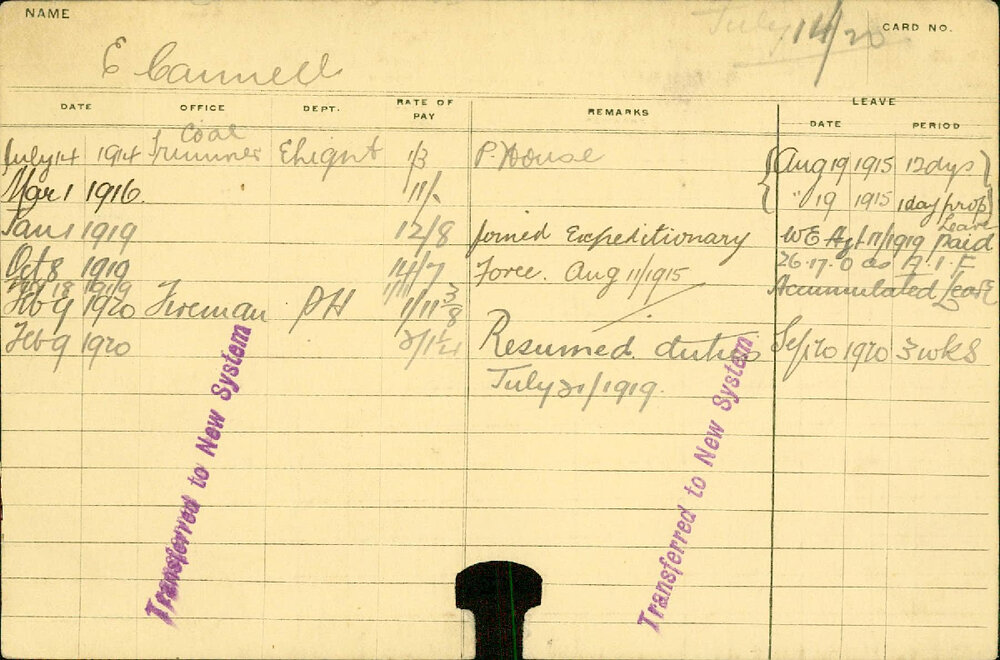 NAME
July 14/20 CARD NO.
E Cannell
DATE OFFICE DEPT. RATE OF PAY REMARKS LEAVE
DATE PERIOD
July 14 1914 Coal Trimmer Elight 1/3 P. House Aug 19 1915 12 dys
Mar 1 1916. 11/- " 19 1915 1 day prop
Jan 1 1919 12/8 Joined Expeditionary WE Agt 17/1919 paid Leave
Oct 8 1919 14/7 Force. Aug 11/1915 26-17-0 as A.I.F
1919 Accumulated Leave
Feb 9 1920 Fireman PH 1/11 3/8
Feb 9 1920 Resumed duties Sep 20 1920 3 wks
July 31/1919.
Transferred to New System
Transferred to New System